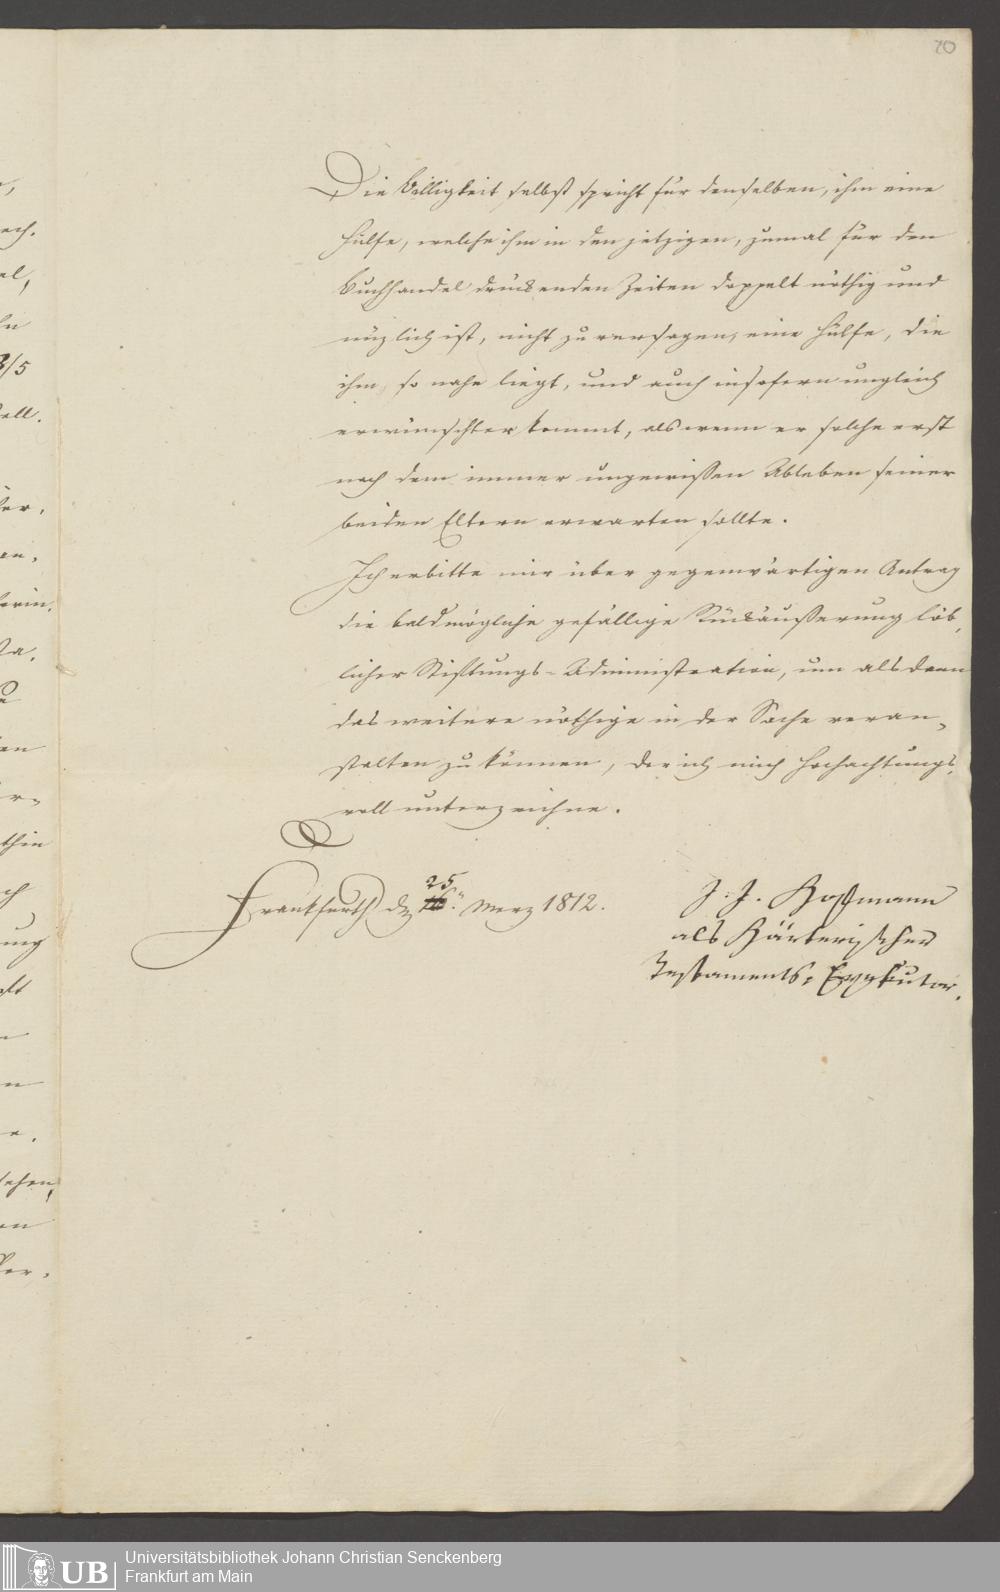 70
Die Billigkeit selbst spricht für denselben, ihm eine
Hülfe, welche ihm in den jetzigen, zumal für den
Buchhandel drückenden Zeiten doppelt nöthig und
nüzlich ist, nicht zu versagen, eine Hülfe, die
ihm so nahe liegt, und auch insofern ungleich
erwünschter kommt, als wenn er solche erst
nach dem immer ungewissen Ableben seiner
beiden Eltern erwarten sollte.
Ich erbitte mir über gegenwärtigen Antrag
die baldmögliche gefällige Rückäußerung löb-
licher Stiftungs-Administration, um alsdann
das weitere nöthige in der Sache veran-
stalten zu können, der ich mich hochachtungs-
voll unterzeichne.
25
Frankfurth d. Merz 1812.
J. J.
als
Testaments-Exekutor.
Universitätsbibliothek Johann Christian Senckenberg
Frankfurt am Main
UB